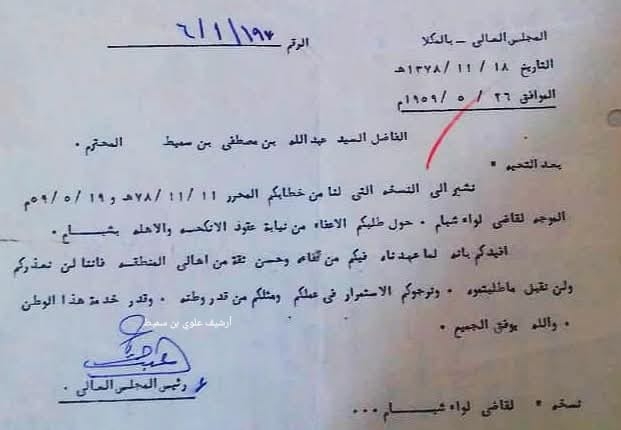 المجلس العالى - بالمكلا
الرقم ٦/١/١٩٧
التاريخ ١٨ / ١١ / ١٣٧٨هـ
الموافق ٢٦ / ٥ / ١٩٥٩م
الفاضل السيد عبدالله بن مصطفى بن سميط المحترم .
بعد التحيه *
نشير الى النسخه التى لنا من خطابكم المحرر ١١ /١١ /٧٨هـ و ١٩ /٥ /٥٩م
الموجه لقاضي لواء شبام . حول طلبكم الاعفاء من نيابة عقود الانكحه والاهله بشبام .
افيدكم بانه لما عهدناه فيكم من كفاءه وحسن ثقة من اهالى المنطقه فاننا لن نعذركم
ولن نقبل ماطلبتموه . ونرجوكم الاستمرار فى عملكم ومثلكم من قدر وطنه . وقدر خدمة هذا الوطن
. والله يوفق الجميع .
أرشيف علوي بن سميط
رئيس المجلس العالى .
نسخه * لقاضي لواء شبام ...